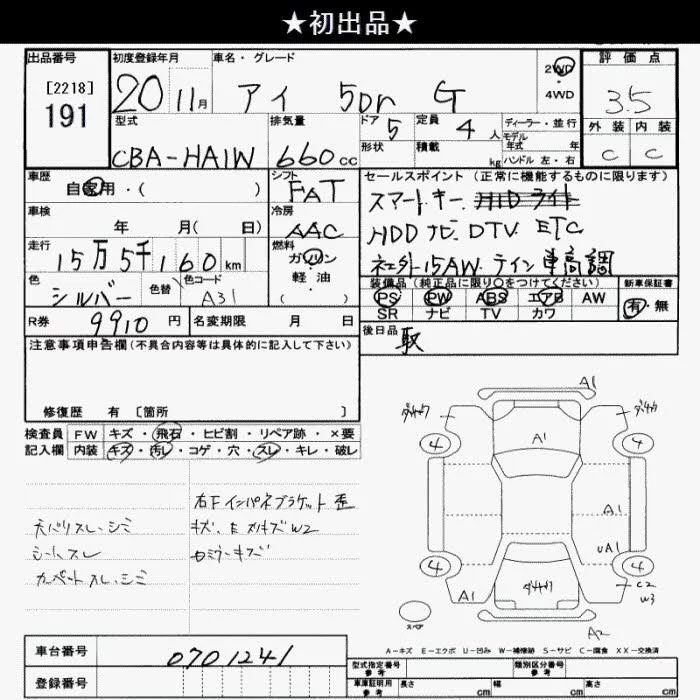 ★初出品★
出品番号
[2218]
191
初度登録年月
20 11月
車名・グレード
アイ 5Dr G
2WD
・
4WD
評価点
3.5
外装 内装
C C
型式
CBA-HA1W
排気量
660cc
ドア 5
形状
定員 4人
積載 kg
ディーラー・並行
モデル
年式 年
ハンドル 左・右
車歴
自家用・( )
シフト
FAT
車検
年 月( 日)
冷房
AAC
走行
15万5千160km
燃料
ガソリン
・
軽油
色
シルバー
色替
色コード
A31
R券 9910円
名変期限 月 日
セールスポイント(正常に機能するものに限ります)
スマートキー HIDライト
HDDナビ DTV ETC
社外15AW テイン車高調
装備品(純正品に限り○をつけてください)
PS PW ABS エアB AW
SR ナビ TV カワ
新車保証書
有・無
後日品
取
注意事項申告欄(不具合内容等は具体的に記入して下さい)
修復歴 有 [箇所 ]
検査員
記入欄
FW キズ・飛石・ヒビ割・リペア跡・×要
内装 キズ・汚レ・コゲ・穴・スレ・キレ・破レ
天バリスレ、シミ
シートスレ
カーペットスレ、シミ
右Fインパネブラケット歪
キズ、
W2
キズ
A1
A1
A1
UA1
C2
W3
A1
A2
4
4
4
4
スペア
A-キズ E-エクボ U-凹み W-補修跡 S-サビ C-腐食 XX-交換済
車台番号
0701241
登録番号
型式指定番号
参考
類別区分番号
参考
車庫証明用
参考
長さ cm
幅 cm
高さ cm